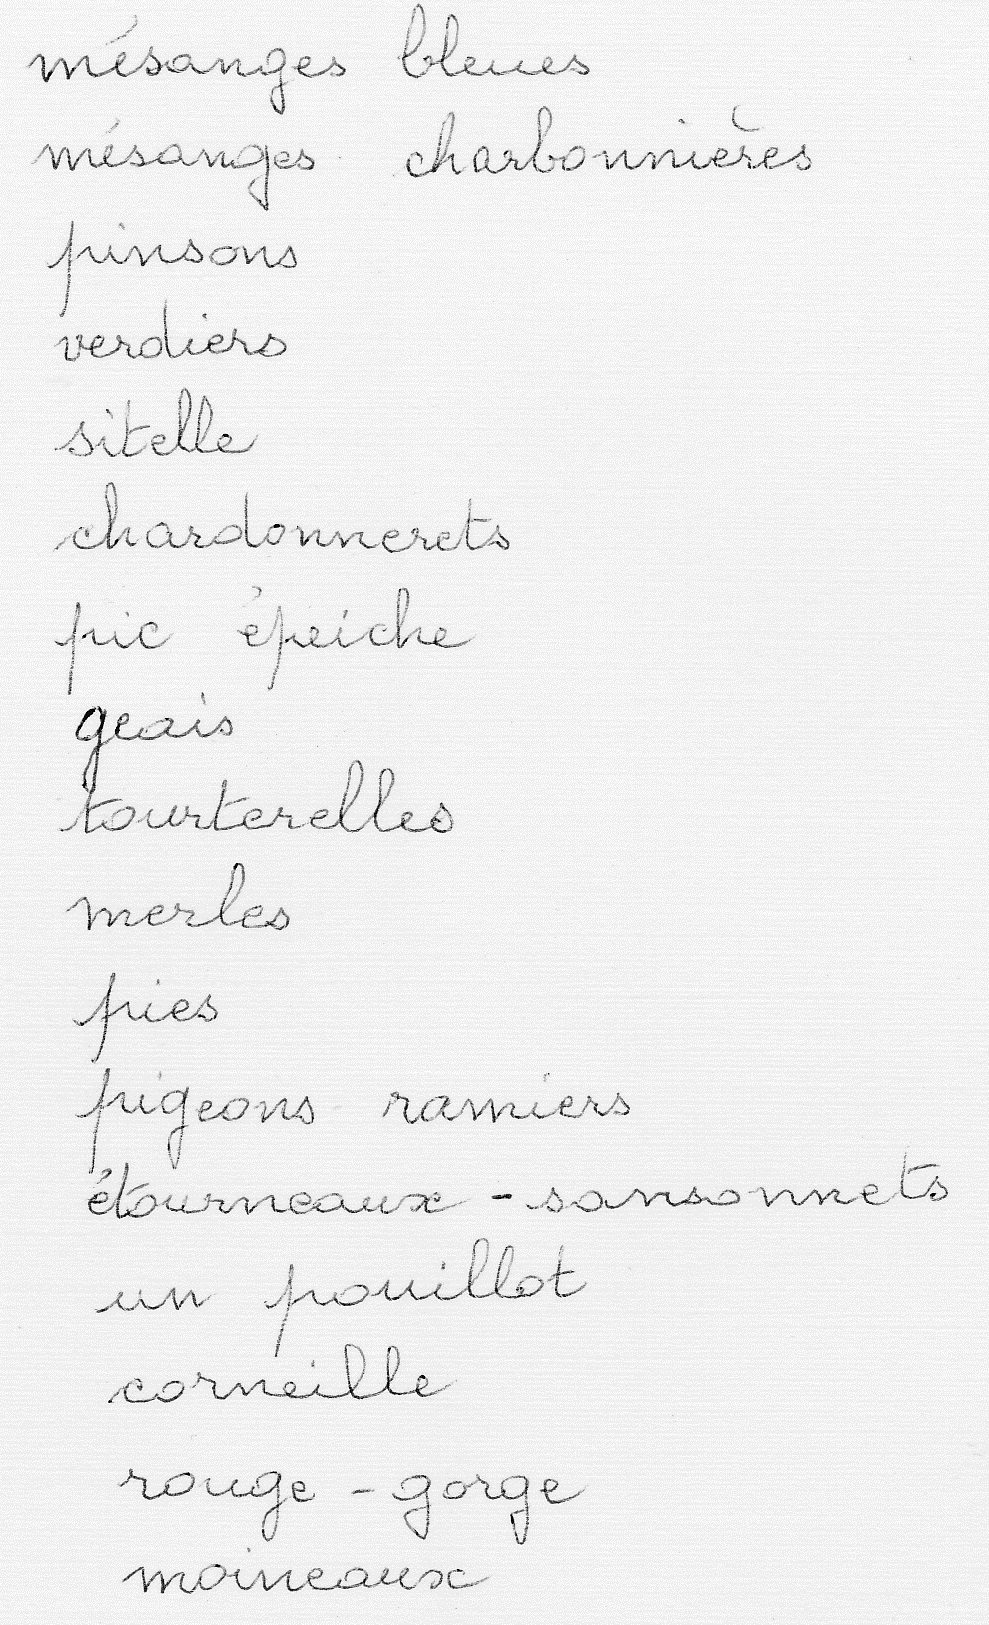 mésanges bleues
mésanges charbonnières
pinsons
verdiers
sitelle
chardonnerets
pic épeiche
geais
tourterelles
merles
pies
pigeons ramiers
étourneaux - sansonnets
un pouillot
corneille
rouge - gorge
moineaux